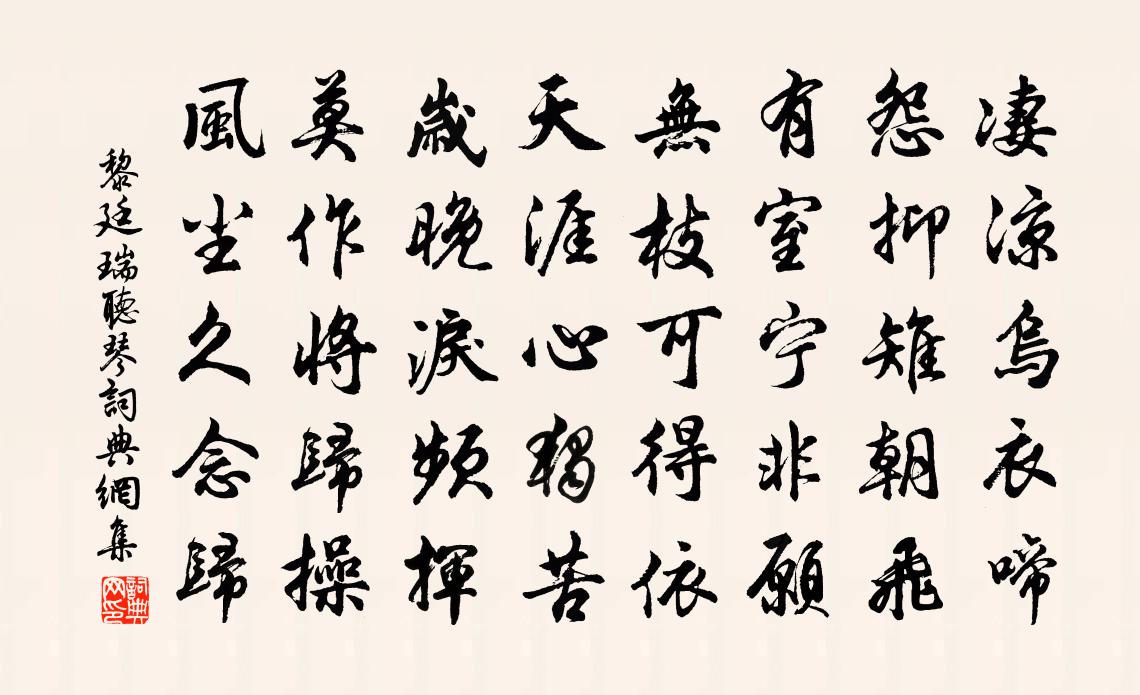 凄凉烏衣啼
怨抑雉朝飛
有室宁非願
無枝可得依
天涯心獨苦
歳晚淚頻揮
莫作將歸操
風尘久念歸
黎廷瑞聽琴詞典網集
詞典网印